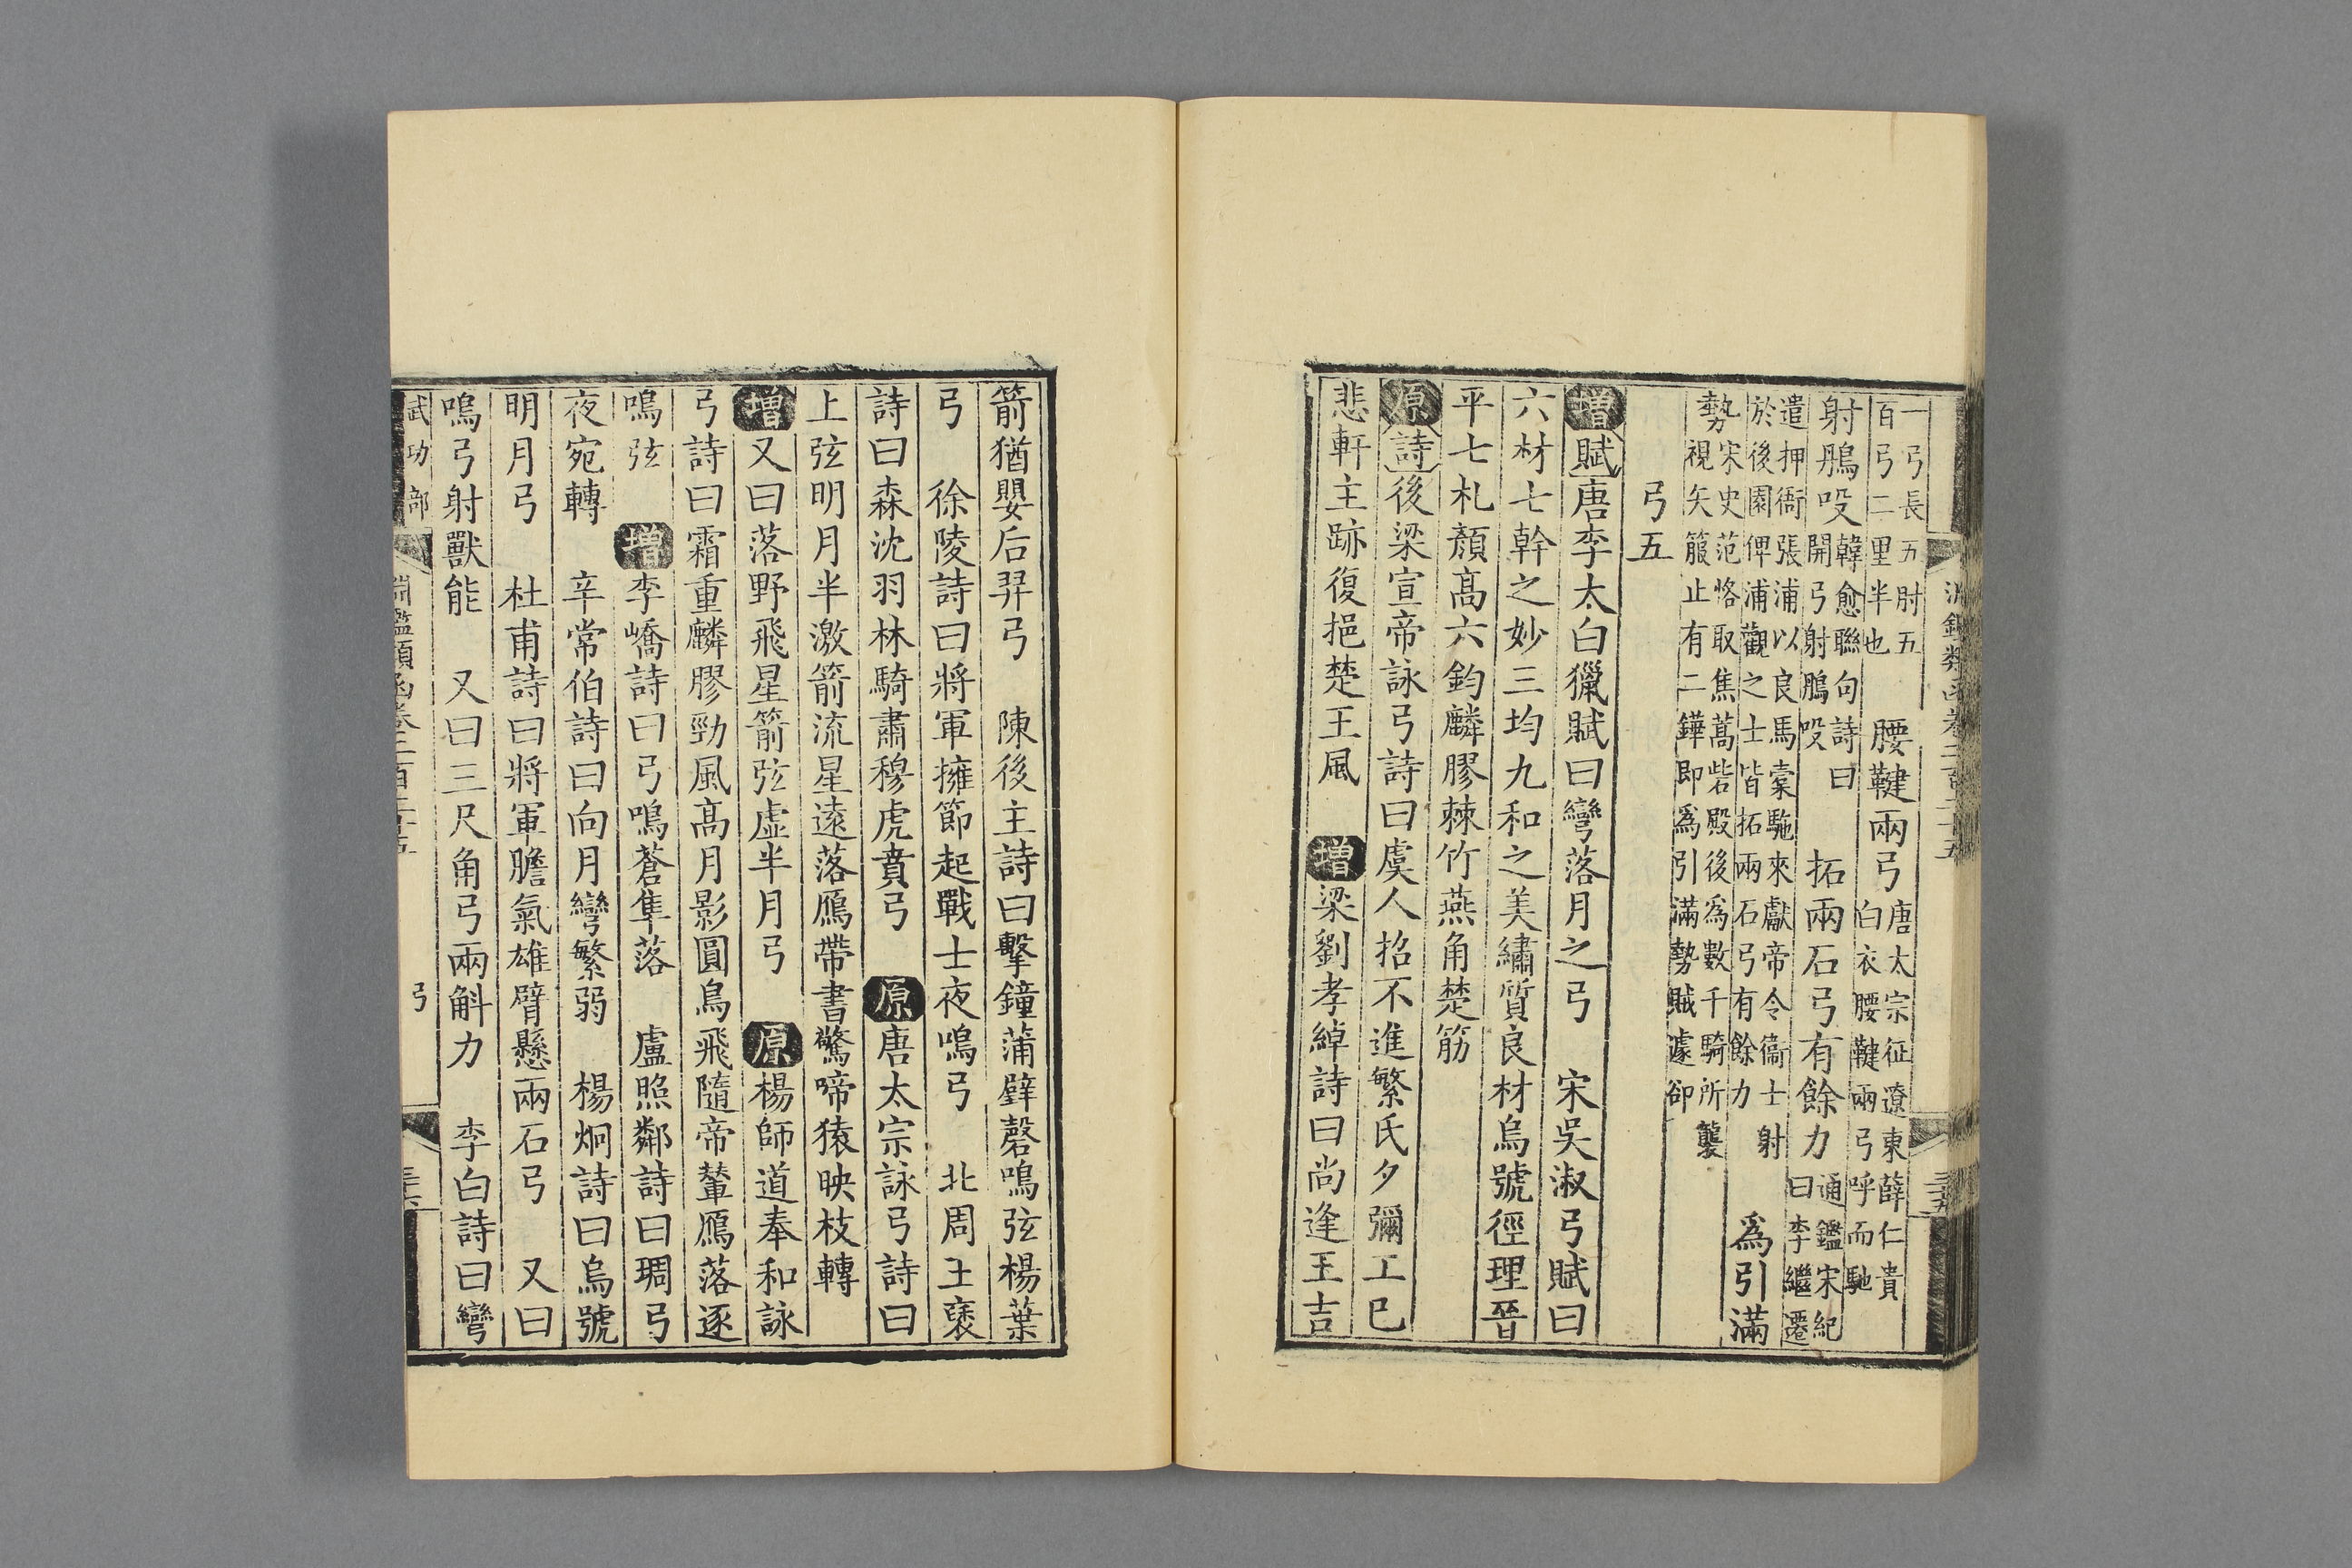 一弓長五肘五
百弓二里半也
腰鞬兩弓
唐太宗征遼東薛仁貴
白衣腰鞬兩弓呼而馳
射鵰㕮
韓愈聯句詩曰
開弓射鵰㕮
拓兩石弓有餘力
通鑑宋紀
曰李繼遷
遣押衙張浦以良馬橐駞來獻帝令衞士射
於後園俾浦觀之士皆拓兩石弓有餘力
爲引滿
勢
宋史范恪取焦蒿砦殿後爲數千騎所襲
視矢箙止有二鏵即爲引滿勢賊遽卻
弓五
增賦唐李太白獵賦曰彎落月之弓 宋吳淑弓賦曰
六材七幹之妙三均九和之美繡質良材烏號徑理晉
平七札顏高六鈞麟膠棘竹燕角楚筋
原詩後梁宣帝詠弓詩曰虞人招不進繁氏夕彌工已
悲軒主跡復挹楚王風 增梁劉孝綽詩曰尚逢王吉
箭猶嬰后羿弓 陳後主詩曰擊鐘蒲璧磬鳴弦楊葉
弓 徐陵詩曰將軍擁節起戰士夜鳴弓 北周王襃
詩曰森沈羽林騎肅穆虎賁弓 原唐太宗詠弓詩曰
上弦明月半激箭流星遠落鴈帶書驚啼猿映枝轉
增又曰落野飛星箭弦虛半月弓 原楊師道奉和詠
弓詩曰霜重麟膠勁風高月影圓烏飛隨帝輦鴈落逐
鳴弦 增李嶠詩曰弓鳴蒼隼落 盧照鄰詩曰琱弓
夜宛轉 辛常伯詩曰向月彎繁弱 楊炯詩曰烏號
明月弓 杜甫詩曰將軍膽氣雄臂懸兩石弓 又曰
鳴弓射獸能 又曰三尺角弓兩斛力 李白詩曰彎
武功部
弓